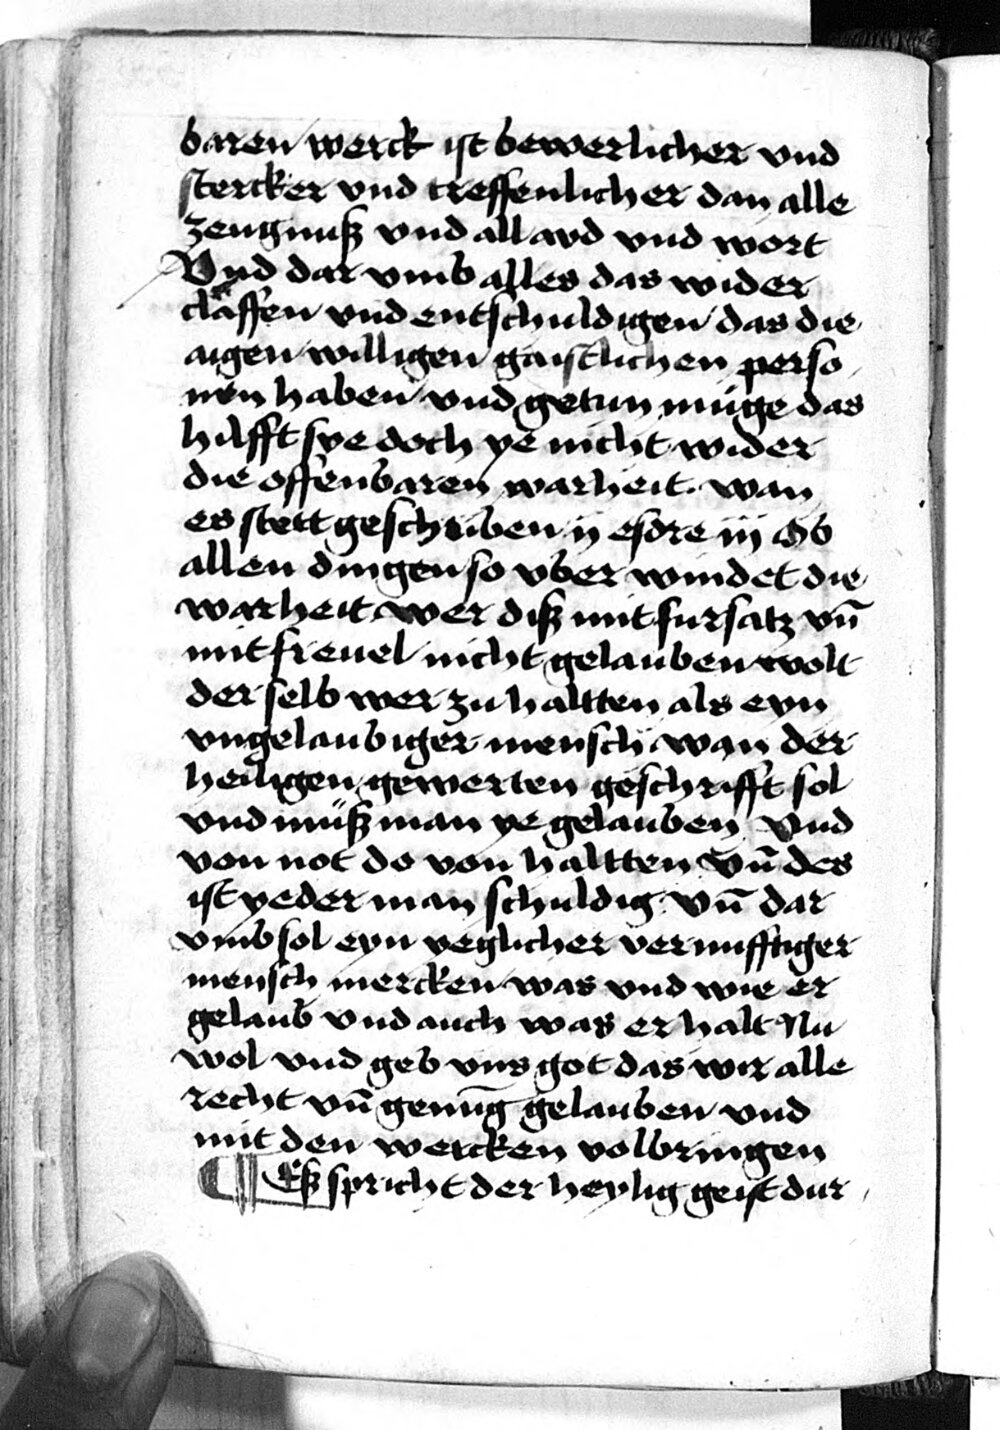 baren werck ist bewerlicher vnd
stercker vnd treffenlicher dan alle
zeugnuß vnd all ayd vnd wort
Vnd dar vmb alles das wider
claffen vnd entschuldigen das die
aigen willigen gaistlichen perso
nen haben vnd getun müge das
hilfft sye doch ye nicht wider
die offenbaren warheit. wan
es stett geschriben ij esdre iij Ob
allen dingen so vber windet die
warheit wer diß mit fursatz vn̄
mit freuel nicht gelauben wolt
der selb wer zu haltten als eyn
vngelaubiger mensch wan der
heiligen gewerten geschrifft sol
vnd müß man ye gelauben Vnd
von not do von haltten Vn̄ des
ist yeder man schuldig Vn̄ dar
vmb sol eyn yeglicher vernufftiger
mensch mercken was vnd wie er
gelaub vnd auch was er halt Nu
wol vnd geb vns got das wir alle
recht vn̄ genūg gelauben vnd
mit den wercken volbringen
¶ Eß spricht der heylig geist dur